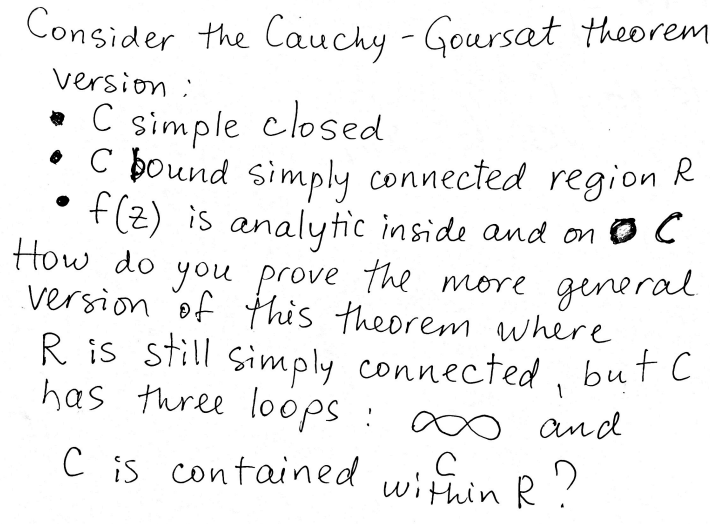 Consider the Cauchy - Goursat theorem
version :
• C simple closed
• C bound simply connected region R
• f(z) is analytic inside and on C
How do you prove the more general
version of this theorem where
R is still simply connected, but C
has three loops : and
C
C is contained within R ?